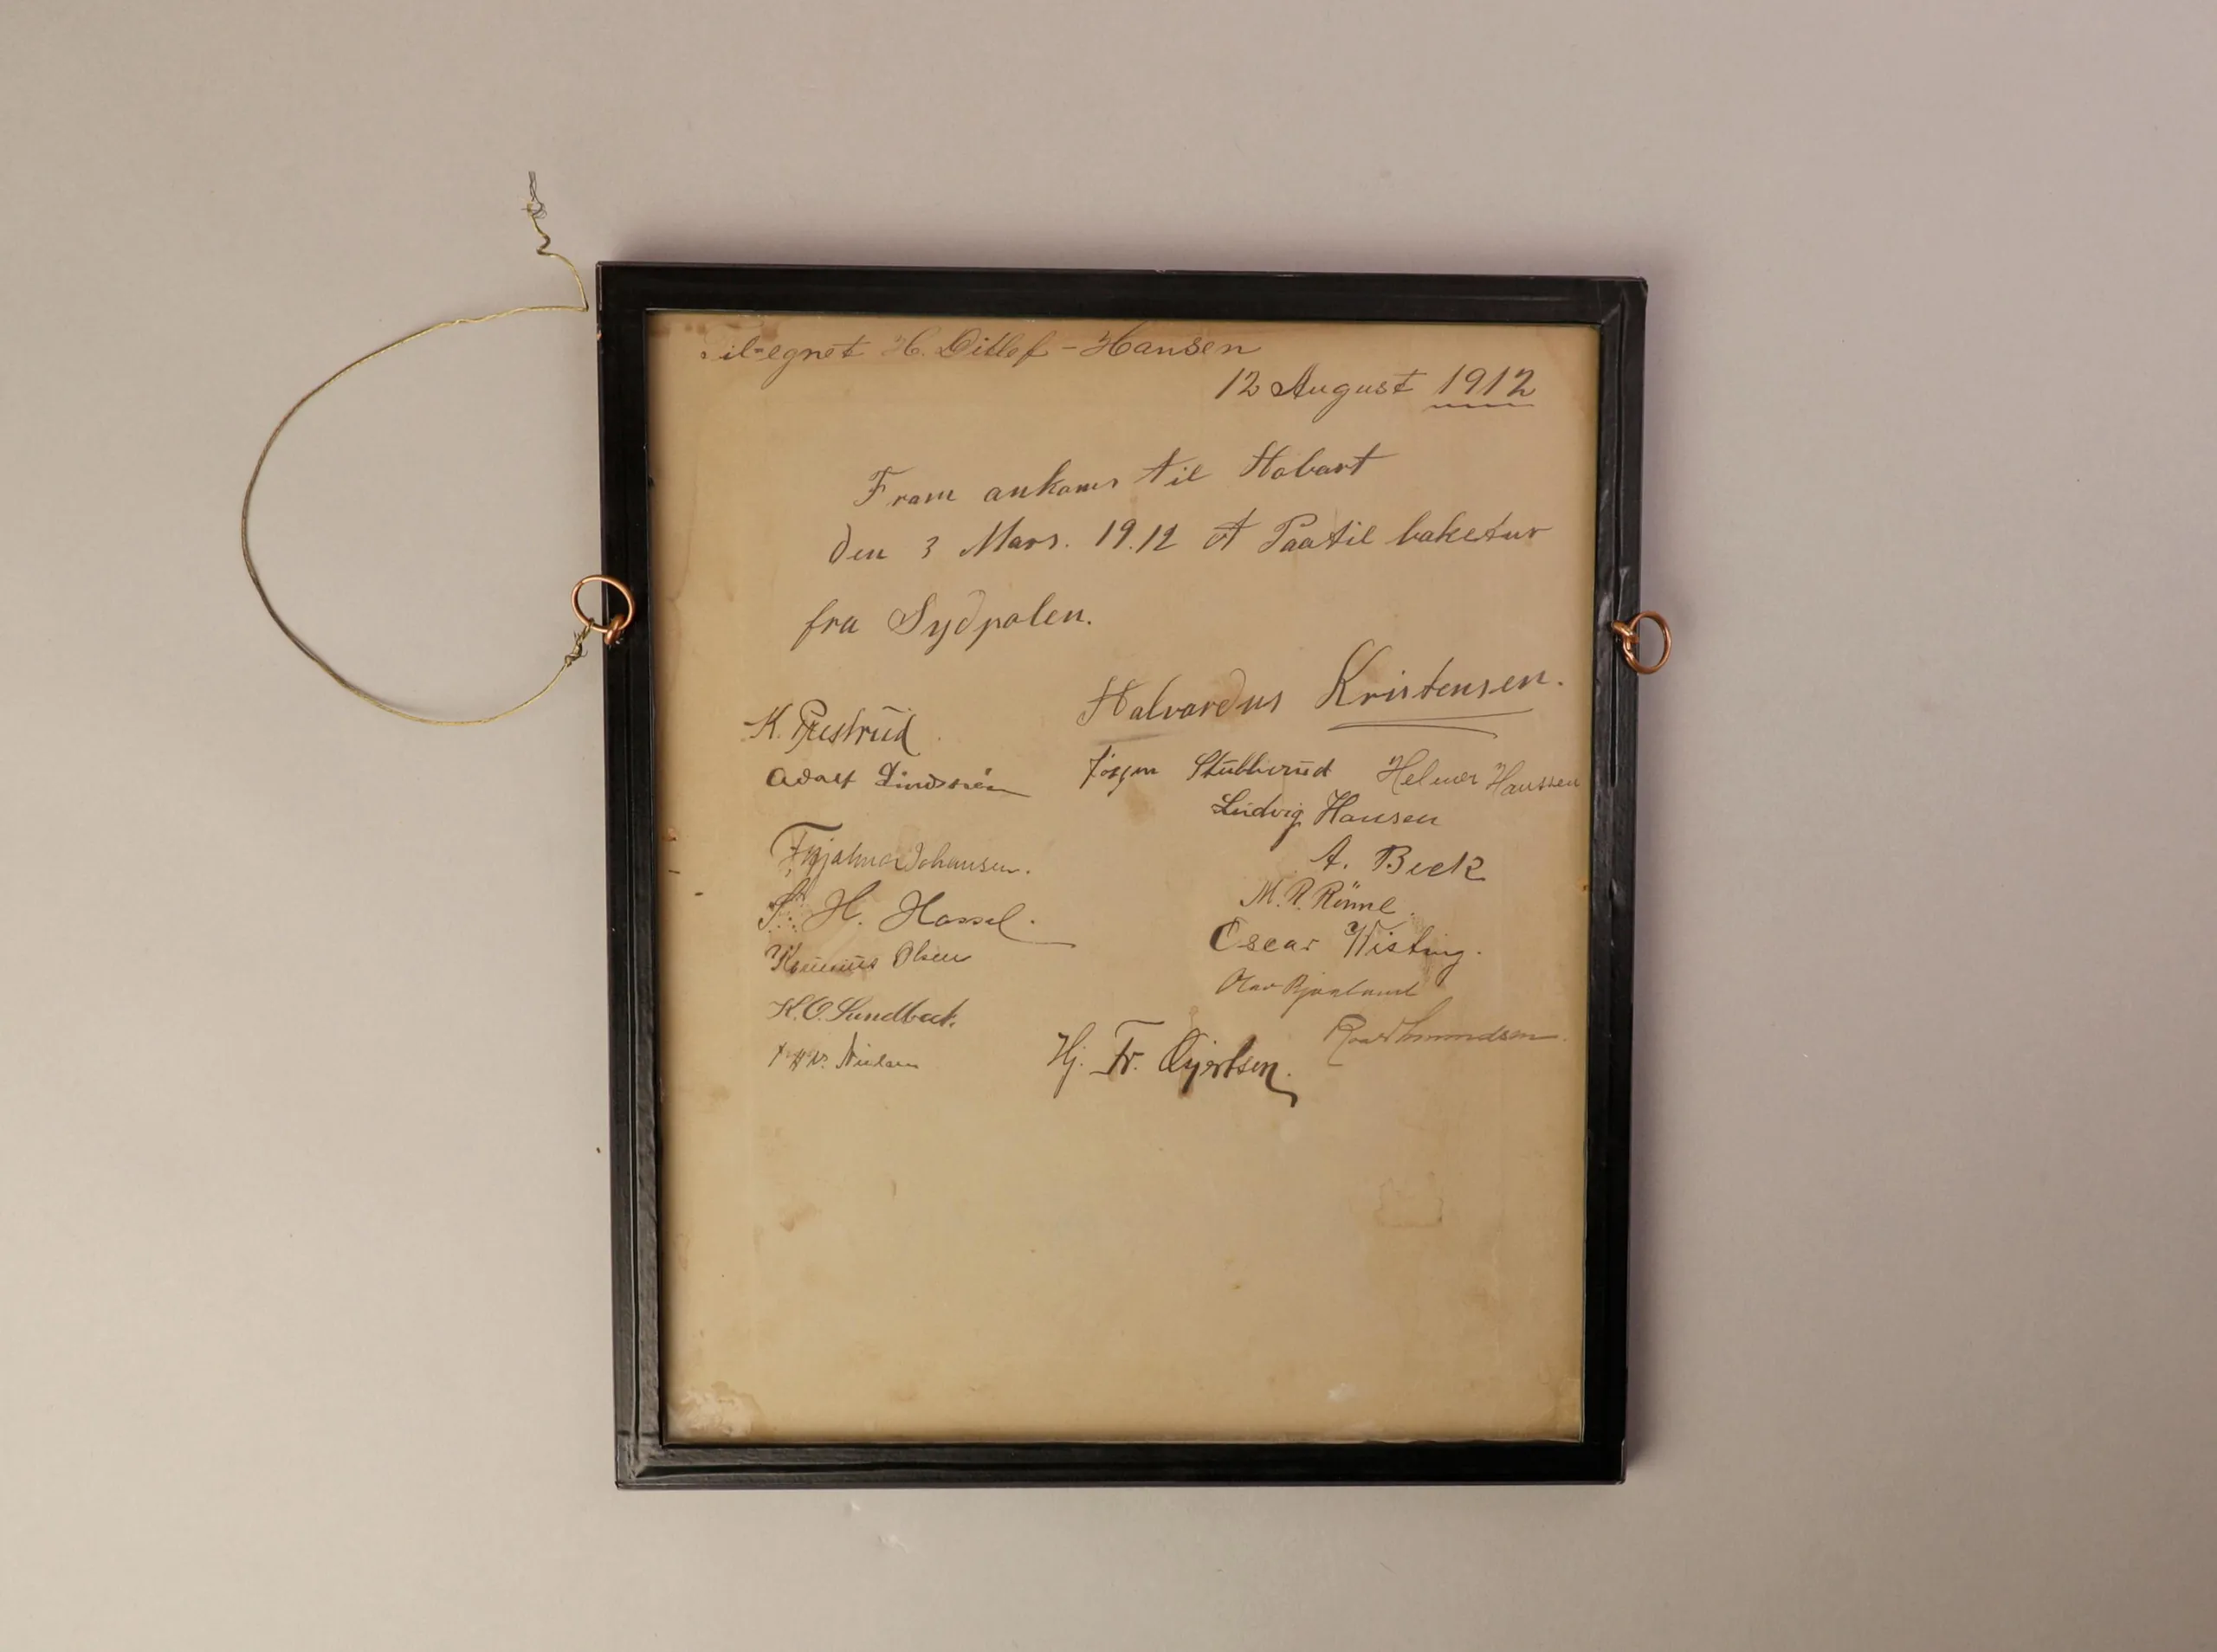 Til-egnet H. Ditlef - Hansen
12 August 1912
Fram ankoms til Hobart
den 3 Mars. 19.12 Paa til baketur
fra Sydpolen.
Halvardus Kristensen.
K. Prestrud
Jörgen Stubberud Helmer Hanssen
Adolf
Ludvig Hansen
Hjalmar Johansen.
A. Beck
S. H. Hassel.
M. R. Rönne.
Oscar Wisting.
Olsen
Olav Bjaaland
K. O. Sundbeck.
Roald Amundsen.
Hj. Fr. Gjertsen.